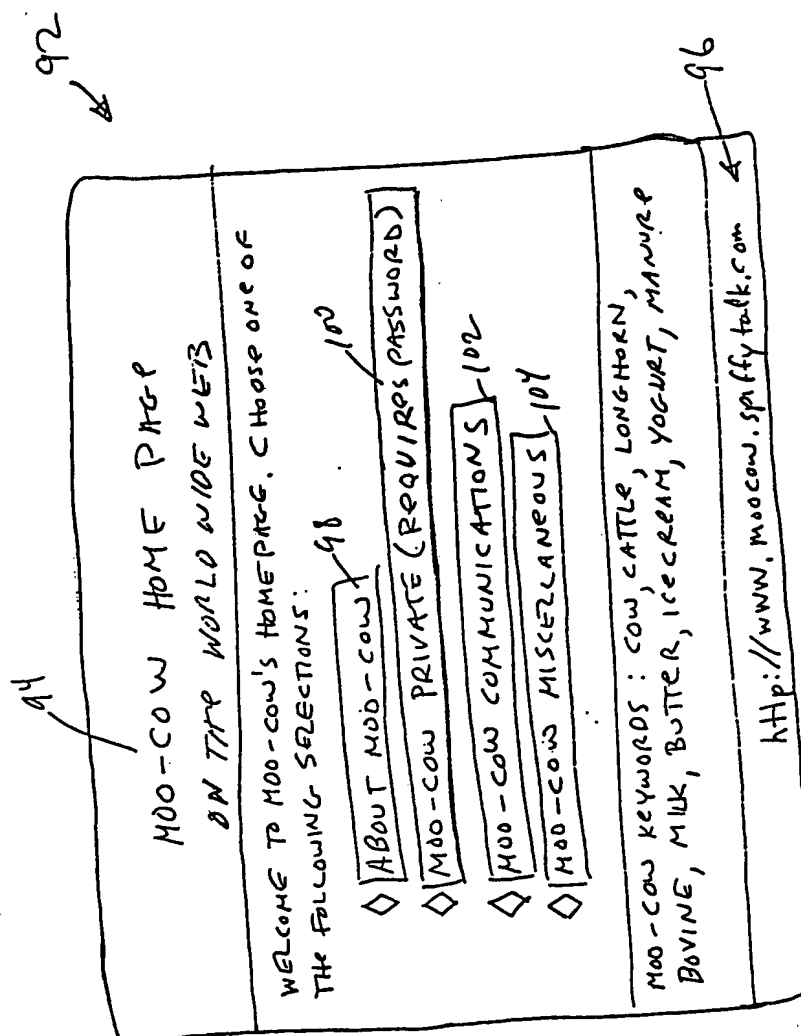 92
94
MOO-COW HOME PAGE
ON THE WORLD WIDE WEB
WELCOME TO MOO-COW'S HOMEPAGE. CHOOSE ONE OF
THE FOLLOWING SELECTIONS:
98
ABOUT MOO-COW
100
MOO-COW PRIVATE (REQUIRES PASSWORD)
MOO-COW COMMUNICATIONS
102
MOO-COW MISCELLANEOUS
104
MOO-COW KEYWORDS: COW, CATTLE, LONGHORN,
BOVINE, MILK, BUTTER, ICECREAM, YOGURT, MANURE
http://www.moocow.spiffytalk.com
96